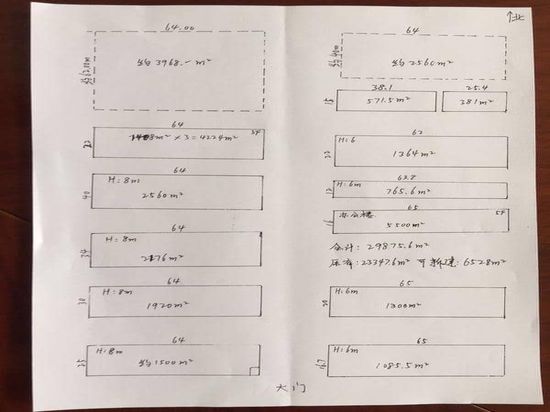 64.00
约62.00m
约3968.-m²
64
22
1408m²×3=4224m²
3F
64
H=8m
40
2560m²
64
H=8m
34
2176m²
64
H=8m
30
1920m²
64
H=8m
25
约1500m²
↑北
64
约40m
约2560m²
38.1
15
571.5m²
25.4
381m²
62
H=6
22
1364m²
63.8
H=6m
12
765.6m²
65
办公楼
16
5F
5500m²
合计: 29875.6m²
库存: 23347.6m² 可新建: 6528m²
65
H=6m
20
1300m²
65
H=6m
16.7
1085.5m²
大门